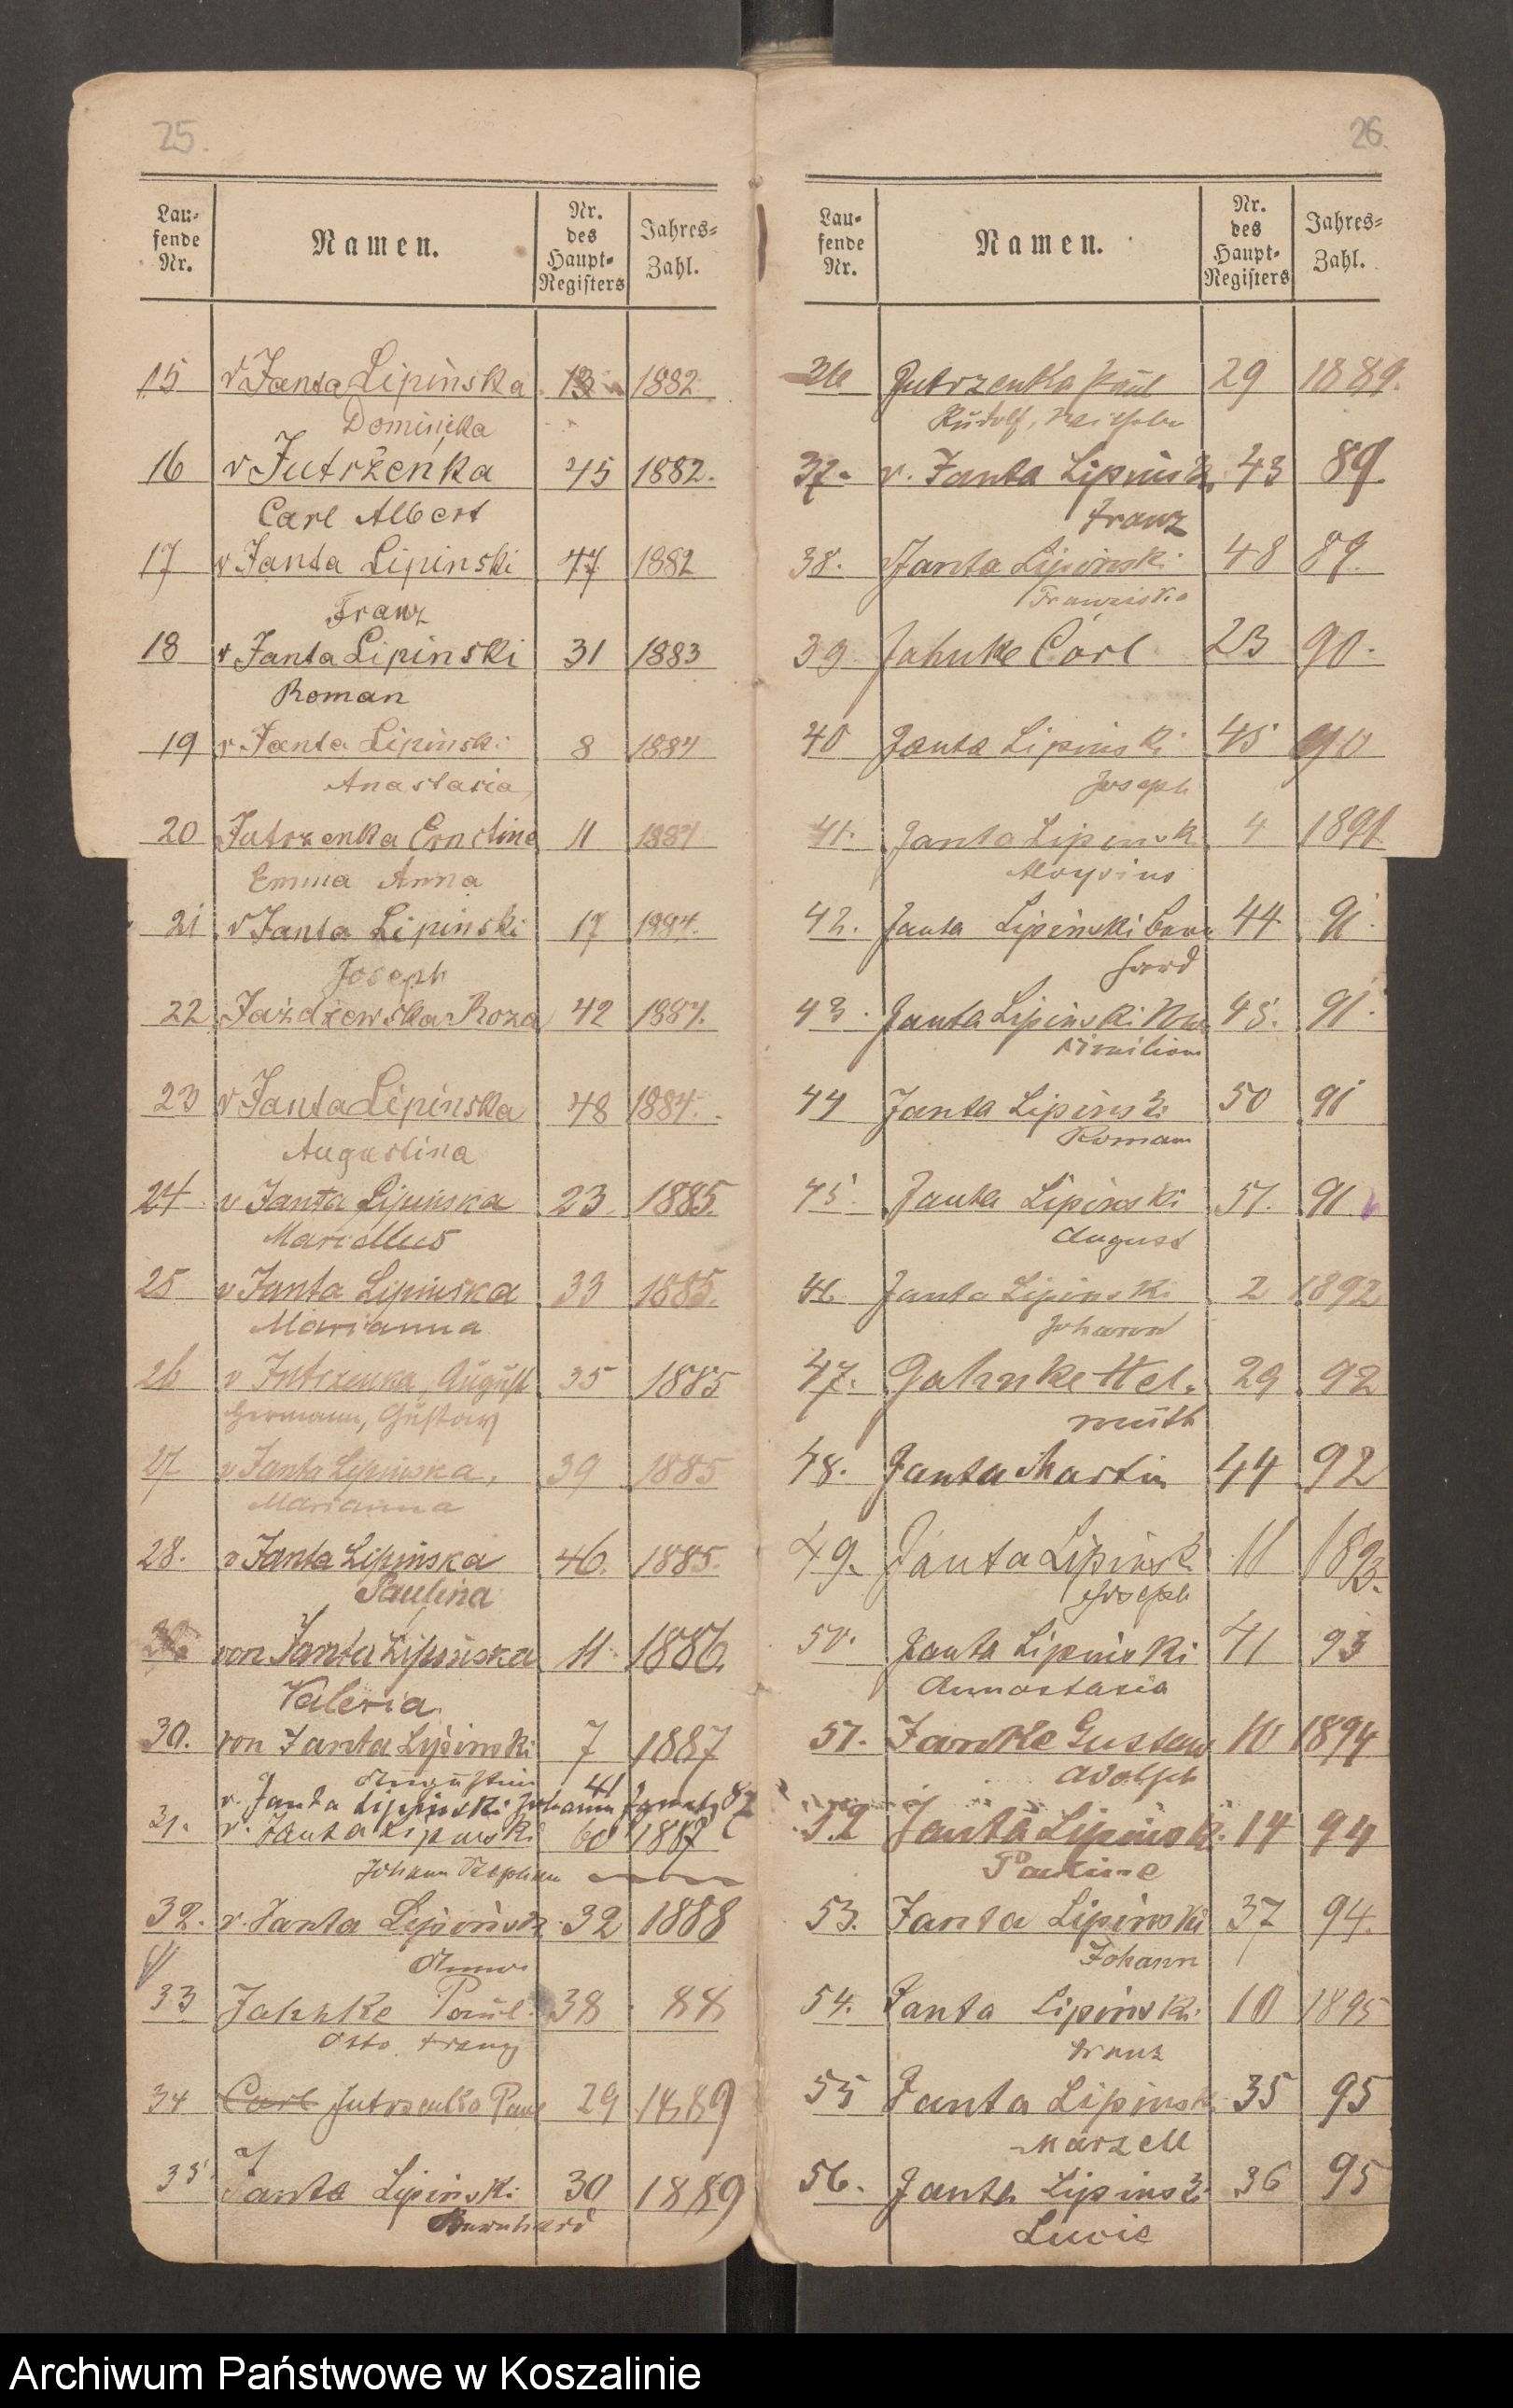 25.
Lau-
fende
Nr.
Namen.
Nr.
des
Haupt-
Registers
Jahres-
Zahl.
15 v Janta Lipinska 13 1882
Dominika
16 v Jutrzenka 45 1882.
Carl Albert
17 v Janta Lipinski 47 1882
Franz
18 v Janta Lipinski 31 1883
Roman
19 v Janta Lipinski 8 1884
Anastasia
20 Jutrzenka Ernstine 11 1884
Emma Anna
21 v Janta Lipinski 17 1884.
Joseph
22 Jazdzewska Roza 42 1884.
23 v Janta Lipinska 48 1884.
Augustina
24 v Janta Lipinska 23 1885.
Marcellus
25 v Janta Lipinska 33 1885.
Marianna
26 v Jutrzenka, August 35 1885
Hermann, Gustaw
27 v Janta Lipinska, 39 1885
Marianna
28. v Janta Lipinska 46. 1885.
Paulina
von Janta Lipinska 11 1886.
Valeria
30. von Janta Lipinski 7 1887
Augustin
v. Janta Lippinski Johann 41 87
31. v. Janta Lipinski 60 1887
Johann Stephan
32. v. Janta Lipinsk 32 1888
33 Jahnke Paul 38 88
Otto Franz
34 Carl Jutrzenka Paul 29 1889
35 Janta Lipinski 30 1889
Bernhard
26.
Lau-
fende
Nr.
Namen.
Nr.
des
Haupt-
Registers
Jahres-
Zahl.
36 Jutrzenka Paul 29 1889.
Rudolf, Wilhelm
37. v. Janta Lipinsk 43 89.
Franz
38. Janta Lipinski 48 89.
Franziska
39 Jahnke Carl 23 90.
40 Janta Lipinski 45 90
Joseph
41. Janta Lipinsk 4 1891
Aloysius
42. Janta Lipinski Bern 44 91
hard
43. Janta Lipinski Max 45. 91.
ximilian
44 Janta Lipinski 50 91
Roman
45 Janta Lipinski 51. 91
August
46. Janta Lipinski 2 1892
Johann
47. Jahnke Hel- 29 92
muth
48. Janta Martin 44 92
49. Janta Lipinsk 11 1893.
Joseph
50. Janta Lipinski 41 93
Annastasia
51. Janke Gustaw 10 1894
Adolph
52 Janta Lipinski 14 94
Pauline
53. Janta Lipinski 37 94.
Johann
54. Janta Lipinski 10 1895
Franz
55 Janta Lipinsk 35 95
Marzell
56. Janta Lipinski 36 95
Lucie
Archiwum Państwowe w Koszalinie